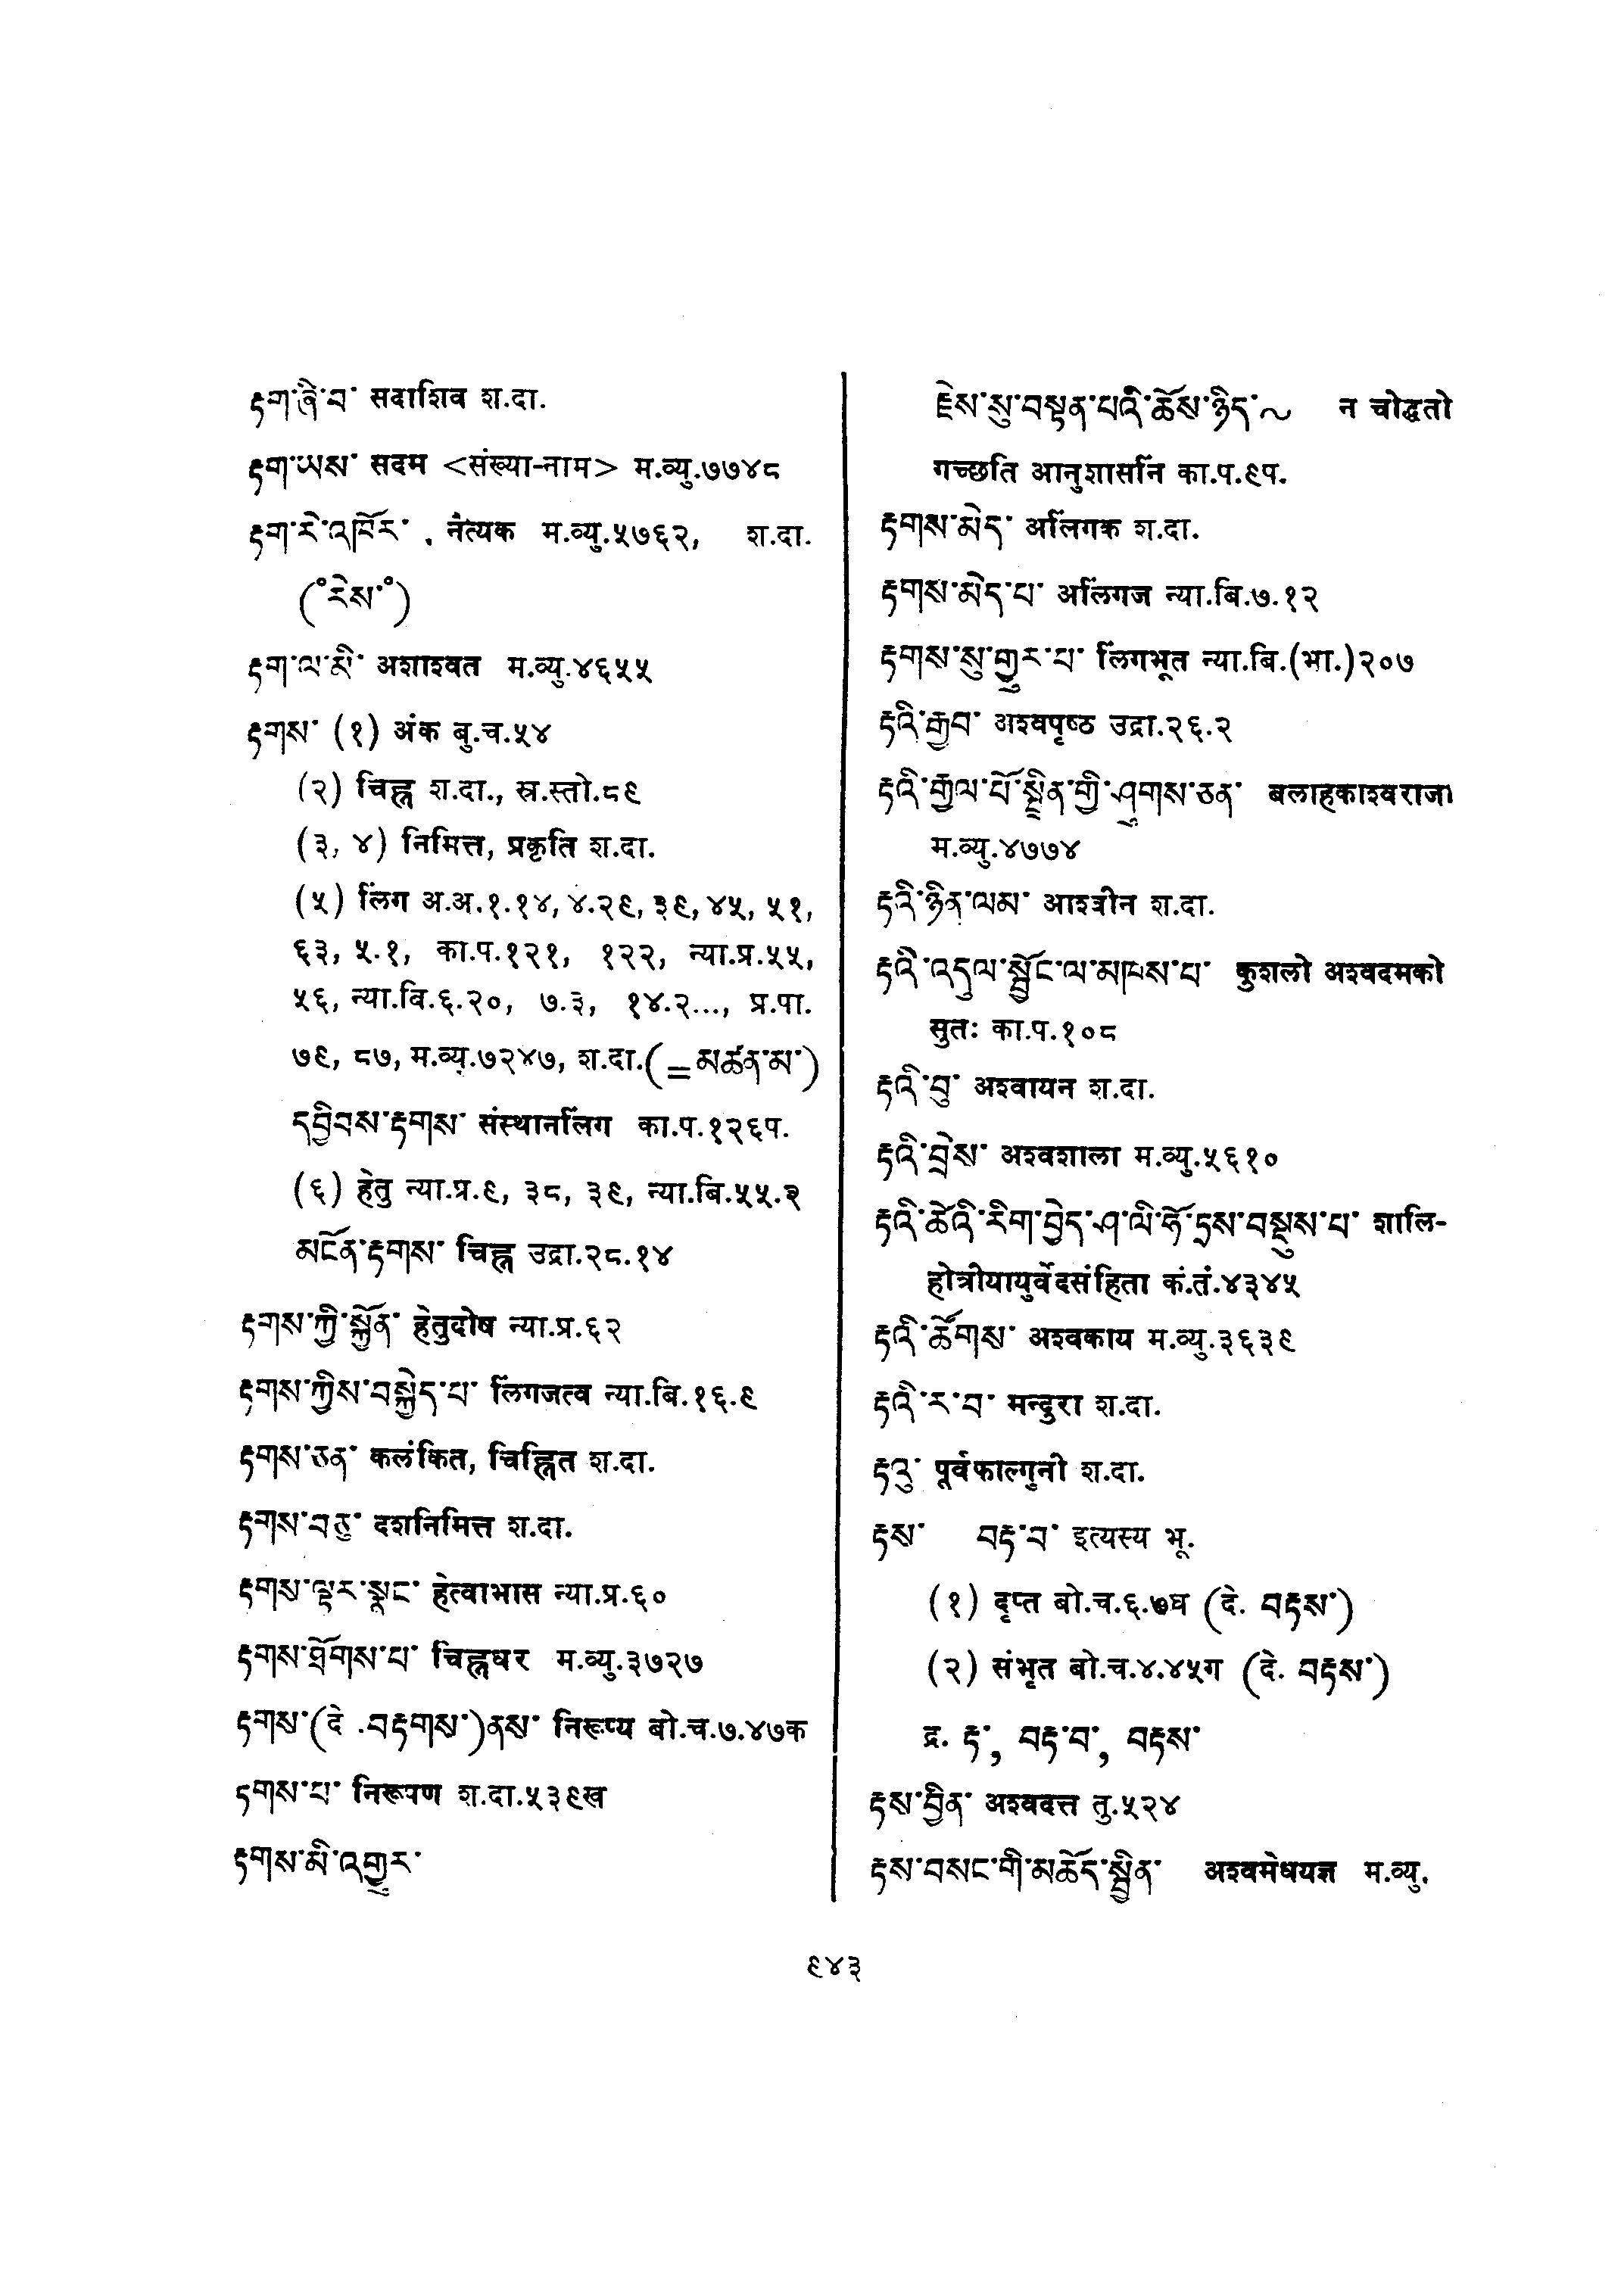 རྟག་ཞི་བ་ सदाशिव श.दा.
རྟག་ཡས་ सदम <संख्या-नाम> म.व्यु.७७४८
རྟག་རེ་འཁོར་ . नैत्यक म.व्यु.५७६२, श.दा.
(°རེས་°)
རྟག་ལ་མི་ अशाश्वत म.व्यु.४६५५
རྟགས་ (१) अंक बु.च.५४
(२) चिह्न श.दा., स्र.स्तो.८९
(३, ४) निमित्त, प्रकृति श.दा.
(५) लिंग अ.अ.१.१४, ४.२९, ३९, ४५, ५१,
६३, ५.१, का.प.१२१, १२२, न्या.प्र.५५,
५६, न्या.वि.६.२०, ७.३, १४.२..., प्र.पा.
७९, ८७, म.व्यु.७२४७, श.दा.(=མཚན་མ་)
དབྱིབས་རྟགས་ संस्थानलिंग का.प.१२६प.
(६) हेतु न्या.प्र.९, ३८, ३९, न्या.बि.५५.२
མངོན་རྟགས་ चिह्न उद्रा.२८.१४
རྟགས་ཀྱི་སྐྱོན་ हेतुदोष न्या.प्र.६२
རྟགས་ཀྱིས་བསྐྱེད་པ་ लिंगजत्व न्या.बि.१६.९
རྟགས་ཅན་ कलंकित, चिह्नित श.दा.
རྟགས་བཅུ་ दशनिमित्त श.दा.
རྟགས་ལྟར་སྣང་ हेत्वाभास न्या.प्र.६०
རྟགས་ཐོགས་པ་ चिह्नधर म.व्यु.३७२७
རྟགས་(དེ .བརྟགས་)ནས་ निरूप्य बो.च.७.४७क
རྟགས་པ་ निरूपण श.दा.५३९ख
རྟགས་མི་འགྱུར་
རྗེས་སུ་བསྟན་པའི་ཆོས་ཉིད་~ न चोद्धतो
गच्छति आनुशासनि का.प.९प.
རྟགས་མེད་ अलिंगक श.दा.
རྟགས་མེད་པ་ अलिंगज न्या.बि.७.१२
རྟགས་སུ་གྱུར་པ་ लिंगभूत न्या.बि.(भा.)२०७
རྟའི་རྒྱབ་ अश्वपृष्ठ उद्रा.२६.२
རྟའི་རྒྱལ་པོ་སྤྲིན་གྱི་ཤུགས་ཅན་ बलाहकाश्वराजा
म.व्यु.४७७४
རྟའི་ཉིན་ལམ་ आश्वीन श.दा.
རྟའི་འདུལ་སྦྱོང་ལ་མཁས་པ་ कुशलो अश्वदमको
सुतः का.प.१०८
རྟའི་བུ་ अश्वायन श.दा.
རྟའི་བྲེས་ अश्वशाला म.व्यु.५६१०
རྟའི་ཚེའི་རིག་བྱེད་ཤ་ལི་ཧོ་ཏྲས་བསྡུས་པ་ शालि-
होत्रीयायुर्वेदसंहिता कं.तं.४३४५
རྟའི་ཚོགས་ अश्वकाय म.व्यु.३६३९
རྟའི་ར་བ་ मन्दुरा श.दा.
རྟའུ་ पूर्वफाल्गुनी श.दा.
རྟས་ བརྟ་བ་ इत्यस्य भू.
(१) दृप्त बो.च.६.७घ (दे. བརྟས་)
(२) संभृत बो.च.४.४५ग (दे. བརྟས་)
द्र. རྟ་, བརྟ་བ་, བརྟས་
རྟས་བྱིན་ अश्वदत्त तु.५२४
རྟས་བསང་གི་མཆོད་སྦྱིན་ अश्वमेधयज्ञ म.व्यु.
९४३